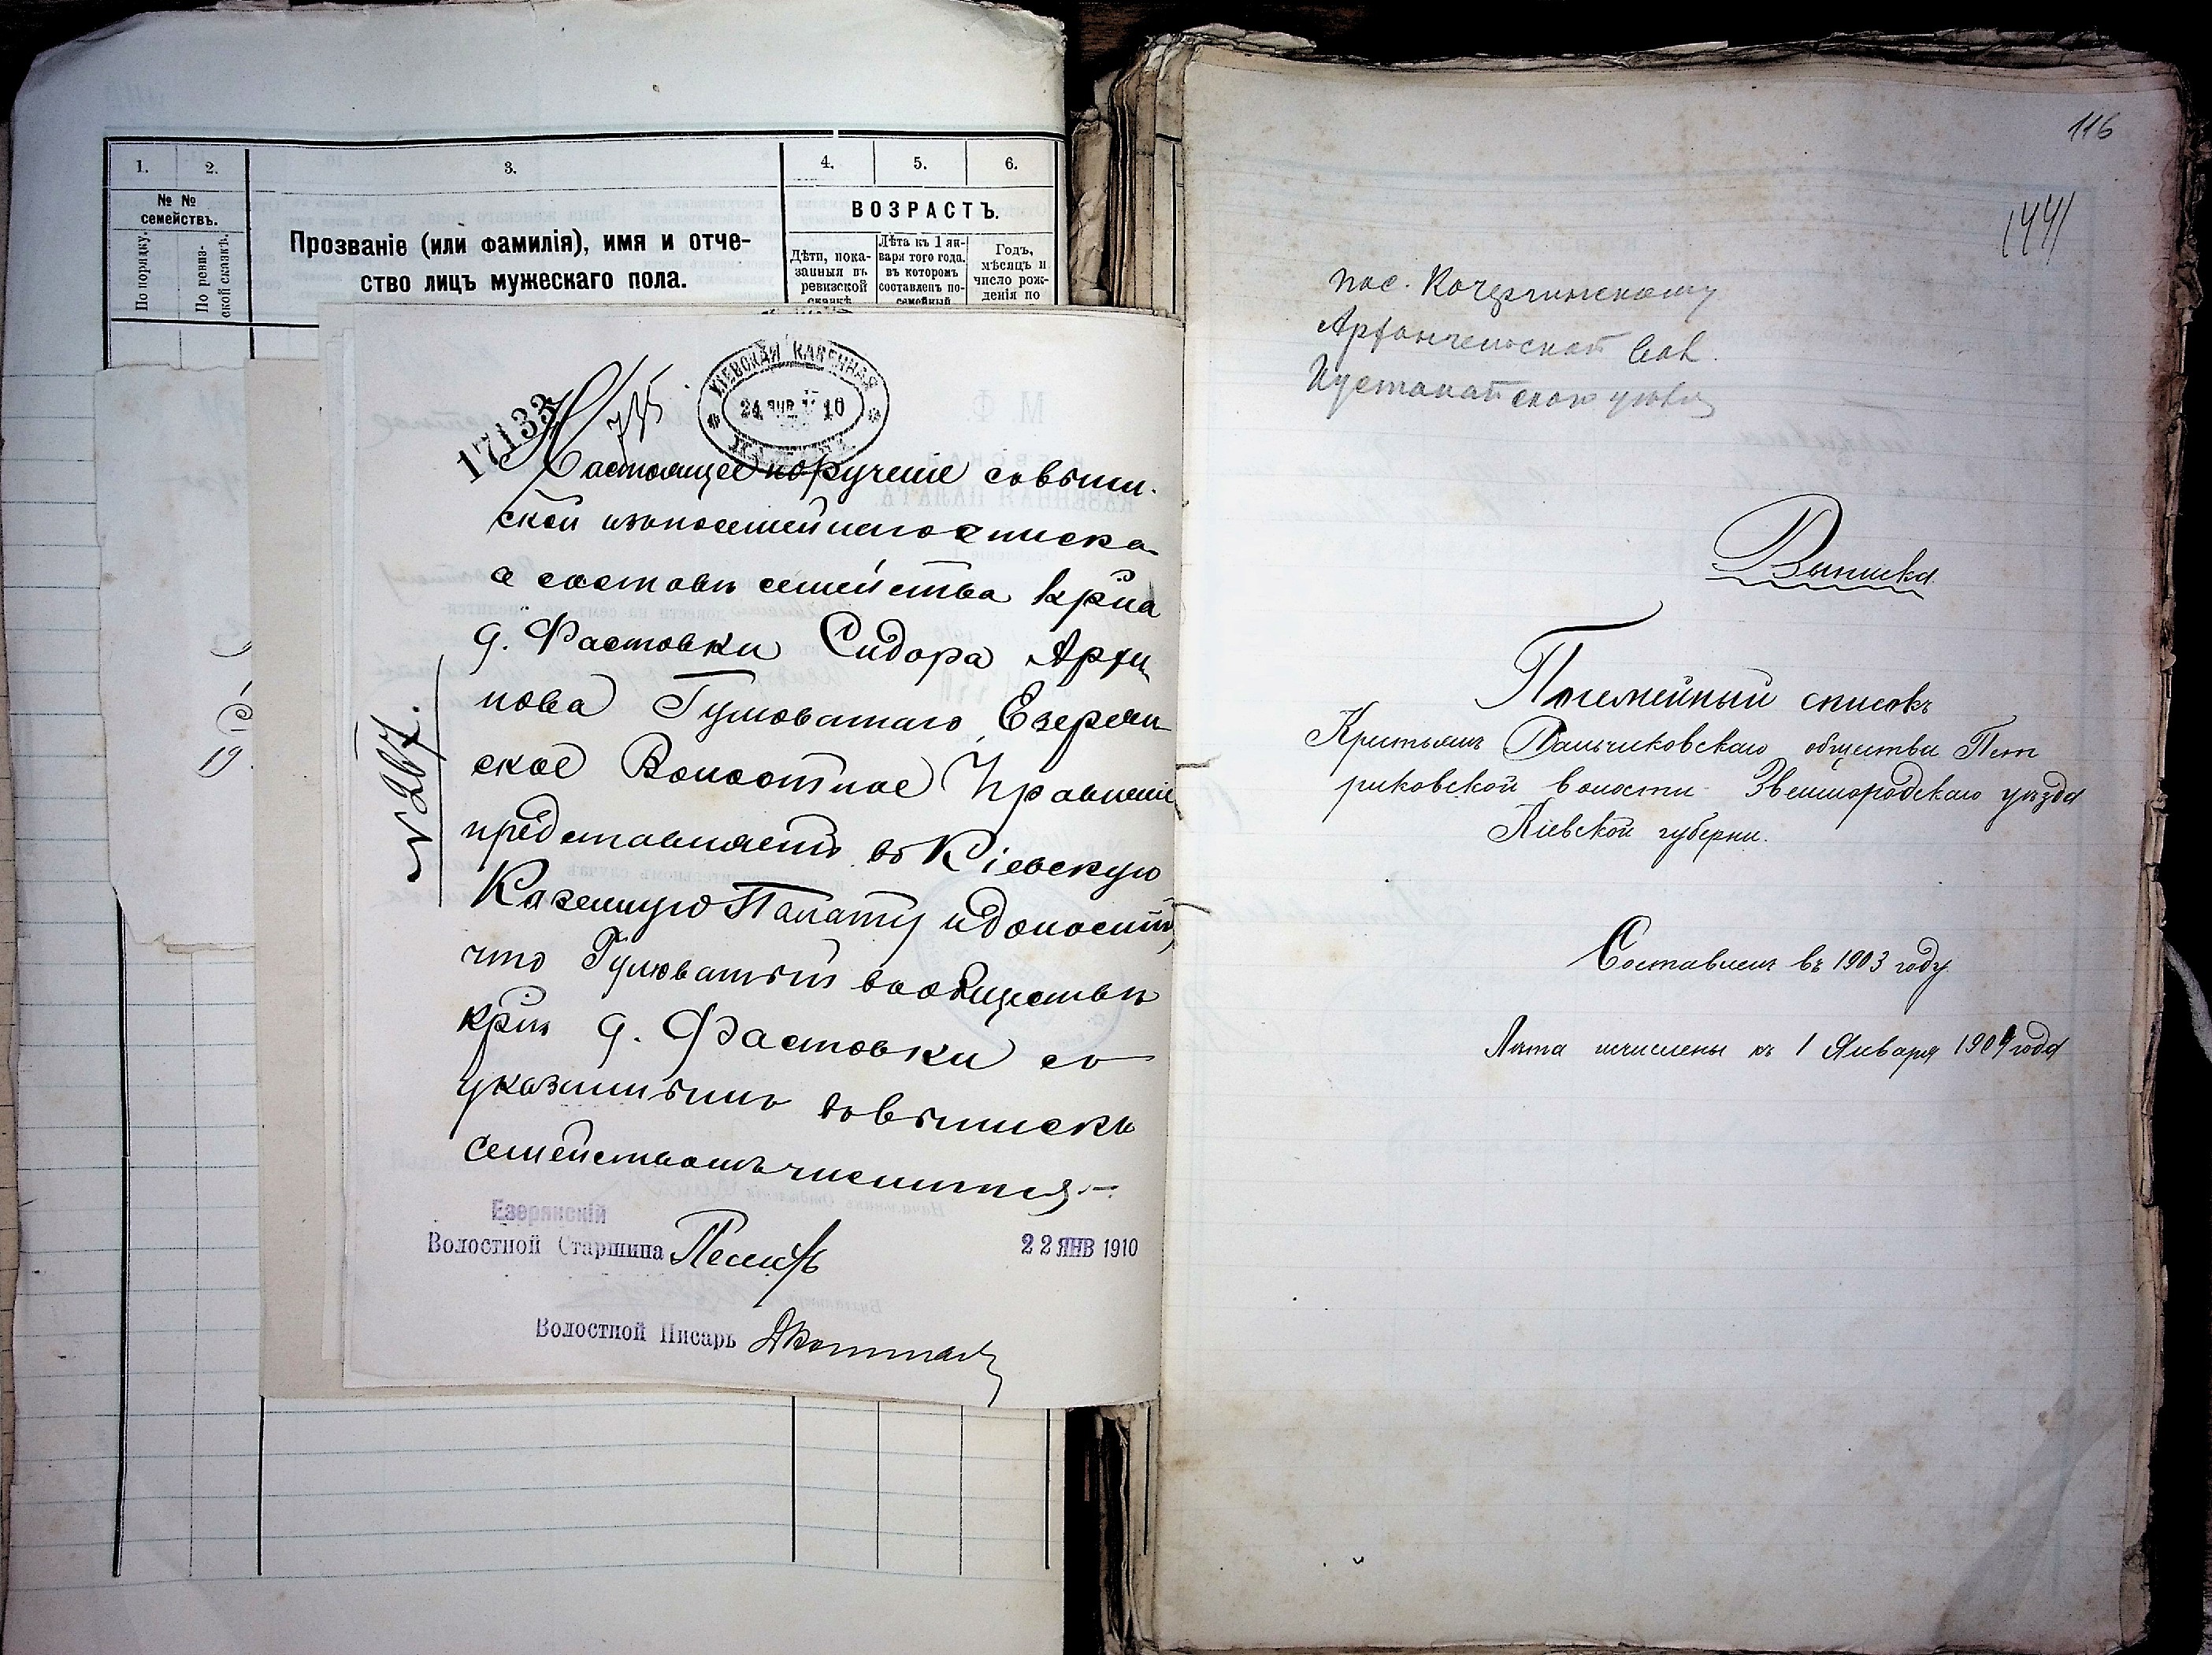 1. 2. 3. 4. 5. 6.
№ №
семействъ.
По порядку.
По ревиз-
ской сказкѣ.
Прозваніе (или фамилія), имя и отче-
ство лицъ мужескаго пола.
ВОЗРАСТЪ.
Дѣти, пока-
занныя въ
ревизской
сказкѣ
Лѣта къ 1 ян-
варя того года,
въ которомъ
составленъ по-
семейный
Годъ,
мѣсяцъ и
число рож-
денія по
19
КІЕВСКАЯ КАЗЕННАЯ
24 ЯНВ 10
17133
735
Настоящее порученіе съ выпи-
ской изъ посемейнаго списка
о составѣ семейства кр-на
д. Фастовки Сидора Архи
пова Гумоватаго Езерян
ское Волостное Правленіе
представляетъ въ Кіевскую
Казенную Палату и доноситъ,
что Гумоватый въ обществѣ
кр-нъ д. Фастовки съ
указаннымъ въ выпискѣ
семействомъ числится.—
№ 267.
Езерянскій
Волостной Старшина
22 ЯНВ 1910
Волостной Писарь
116
1441
пос. Кочергинскому
вол.
Кустанайскаго уѣзда
Выписка
Посемейный списокъ
Крестьянъ Пальчиковскаго общества Пет
риковской волости Звенигородскаго уѣзда
Кіевской губерни.
Составленъ въ 1903 году
Лѣта исчислены къ 1 Января 1904 года